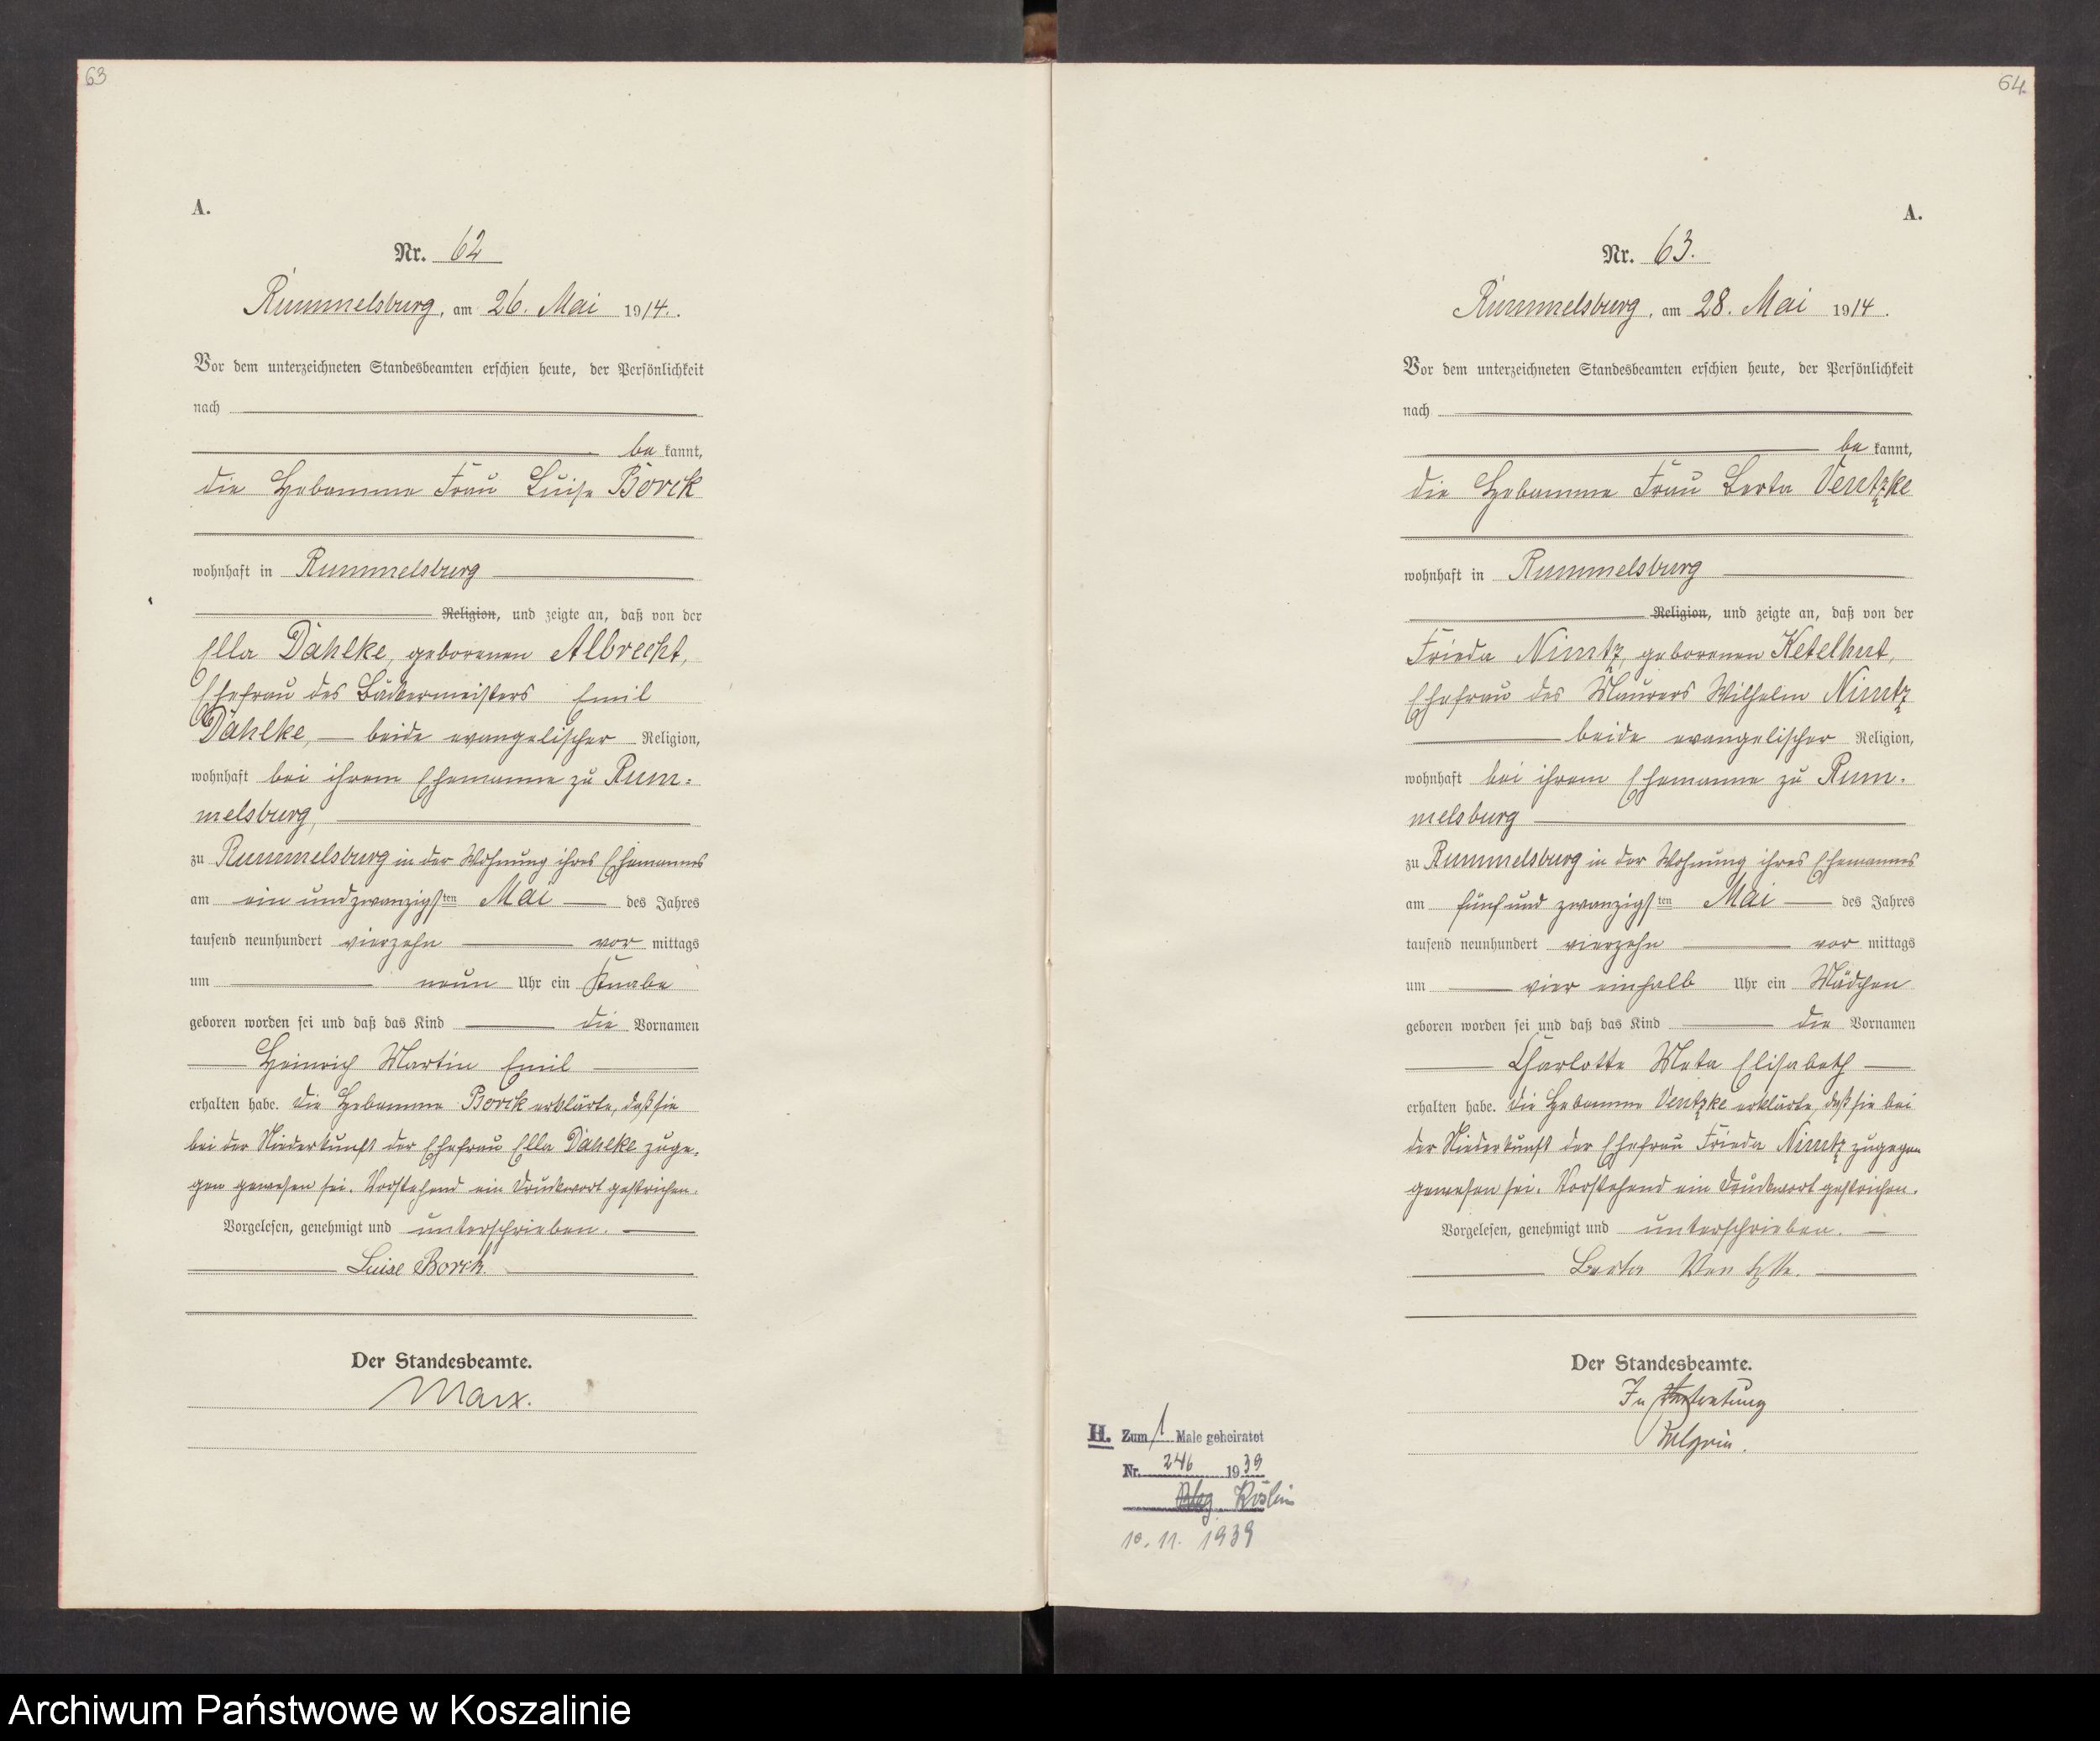 63
A.
Nr. 62
Rummelsburg, am 26. Mai 1914.
Vor dem unterzeichneten Standesbeamten erschien heute, der Persönlichkeit
nach
be kannt,
die Hebamme Frau Luise Borck
wohnhaft in Rummelsburg
Religion, und zeigte an, daß von der
Ella Dahlke, geborenen Albrecht,
Ehefrau des Bäckermeisters Emil
Dahlke, beide evangelischer Religion,
wohnhaft bei ihrem Ehemanne zu Rum=
melsburg,
zu Rummelsburg in der Wohnung ihres Ehemannes
am ein und zwanzigsten Mai des Jahres
tausend neunhundert vierzehn vor mittags
um neun Uhr ein Knabe
geboren worden sei und daß das Kind die Vornamen
Heinrich Martin Emil
erhalten habe. Die Hebamme Borck erklärte, daß sie
bei der Niederkunft der Ehefrau Ella Dahlke zuge=
gen gewesen sei. Vorstehend ein Druckwort gestrichen.
Vorgelesen, genehmigt und unterschrieben.
Luise Borck.
Der Standesbeamte.
Marx.
64
A.
Nr. 63.
Rummelsburg, am 28. Mai 1914.
Vor dem unterzeichneten Standesbeamten erschien heute, der Persönlichkeit
nach
be kannt,
die Hebamme Frau Berta Ventzke
wohnhaft in Rummelsburg
Religion, und zeigte an, daß von der
Frieda Nimtz, geborenen Ketelhut,
Ehefrau des Maurers Wilhelm Nimtz
beide evangelischer Religion,
wohnhaft bei ihrem Ehemanne zu Rum=
melsburg
zu Rummelsburg in der Wohnung ihres Ehemannes
am fünf und zwanzigsten Mai des Jahres
tausend neunhundert vierzehn vor mittags
um vier einhalb Uhr ein Mädchen
geboren worden sei und daß das Kind die Vornamen
Charlotte Meta Elisabeth
erhalten habe. Die Hebamme Ventzke erklärte, daß sie bei
der Niederkunft der Ehefrau Frieda Nimtz zugegen
gewesen sei. Vorstehend ein Druckwort gestrichen.
Vorgelesen, genehmigt und unterschrieben.
Berta Ventzke.
Der Standesbeamte.
In Vertretung
H. Zum 1 Male geheiratet
Nr. 246 1939
Köslin
10. 11. 1939
Archiwum Państwowe w Koszalinie